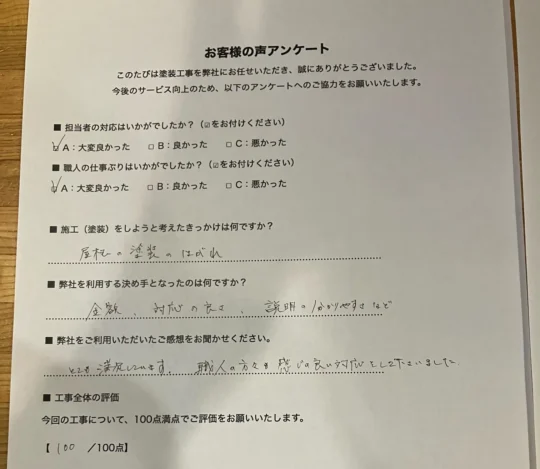 お客様の声アンケート
このたびは塗装工事を弊社にお任せいただき、誠にありがとうございました。
今後のサービス向上のため、以下のアンケートへのご協力をお願いいたします。
■ 担当者の対応はいかがでしたか？（☑をお付けください）
☑ A：大変良かった □ B：良かった □ C：悪かった
■ 職人の仕事ぶりはいかがでしたか？（☑をお付けください）
☑ A：大変良かった □ B：良かった □ C：悪かった
■ 施工（塗装）をしようと考えたきっかけは何ですか？
屋根の塗装のはがれ
■ 弊社を利用する決め手となったのは何ですか？
金額、対応の良さ、説明の分かりやすさなど
■ 弊社をご利用いただいたご感想をお聞かせください。
とても満足しています。職人の方々も感じの良い対応をして下さいました
■ 工事全体の評価
今回の工事について、100点満点でご評価をお願いいたします。
【 100 ／100点】